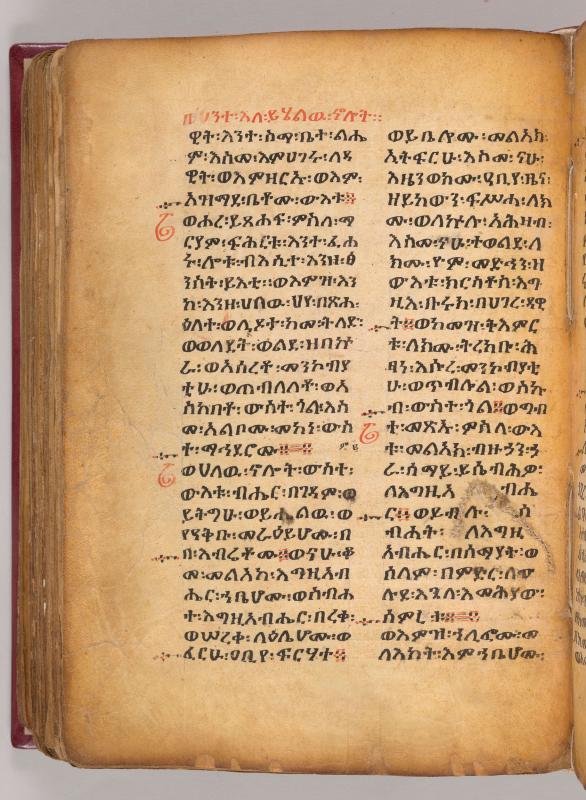 ንተ፡እለ፡ይሄልዉ፡ኖሎት፡፡
ዊት፡እንተ፡ስማ፡ቤተ፡ልሔ
ም፡እስመ፡እምሀገሩ፡ለዳ
ዊት፡ወእምዘርኡ፡ወእም፡
አዝማደ፡ቤቶሙ፡ውእቱ፨
ወሐረ፡ይጸሐፍ፡ምስለ፡ማ
ርያም፡ፍሕርቱ፡እንተ፡ፈሐ
ሩ፡ሎቱ፡ብእሲተ፡እንዘ፡ፅ
ንስት፡ይእቲ፡፡ወእምዝ፡እን
ከ፡እንዘ፡ሀለዉ፡ህየ፡በጽሐ፡
ዕለተ፡ወሊዶታ፡ከመ፡ትለድ፡
ወወለደት፡ወልደ፡ዘበኵ
ራ፡ወአሰረቶ፡መንኮብያ
ቲሁ፡ወጠብለለቶ፡ወአ
ስከበቶ፡ውስተ፡ጎል፡እስ
መ፡አልቦሙ፡መካነ፡ውስ
ተ፡ማኅደሮሙ፨=፨
ወሀለዉ፡ኖሎት፡ውስተ፡
ውእቱ፡ብሔር፡በገዳም፡ወ
ይተግሁ፡ወይሔልዉ፡ወ
የዓቅቡ፡መራዕይሆሙ፡በ
በ፡እብሬቶሙ፨ወናሁ፡ቆ
መ፡መልአከ፡እግዚአብ
ሔር፡ኀቤሆሙ፡ወስብሐ
ተ፡እግዚአብሔር፡በረቀ፡
ወሠረቀ፡ላዕሌሆሙ፡ወ
ፈርሁ፡ዐቢየ፡ፍርሃተ፨
ወይቤሎሙ፡መልአክ፡
ኢትፍርሁ፡እስመ፡ናሁ፡
እዜንወክሙ፡ዐቢየ፡ዜና፡
ዘይከውን፡ፍሥሐ፡ለክ
ሙ፡ወለኵሉ፡አሕዛብ፡
እስመ፡ናሁ፡ተወልደ፡ለ
ክሙ፡ዮም፡መድኅን፡ዘ
ውእቱ፡ክርስቶስ፡እግ
ዚእ፡ቡሩክ፡በሀገረ፡ዳዊ
ት፨ወከመዝ፡ትእምር
ቱ፡ለክሙ፡ትረክቡ፡ሕ
ፃነ፡እሱረ፡መንኮብያቲ
ሁ፡ወጥብሉል፡ወስኩ
ብ፡ውስተ፡ጎል፨ወግብ
ተ፡መጽኡ፡ምስለ፡ውእ
ቱ፡መልአክ፡ብዙኃን፡ኃ
ራ፡ሰማይ፡ይሴብሕዎ፡
ለእግዚአ ብሔ
ር፨ወይብሉ፡ ስ
ብሐት፡ ለእግዚ
አብሔር፡በሰማያት፡ወ
ሰላም፡በምድር፡ለዕ
ጓለ፡እመሕያው፡
ወእምዝ፡ኀሊፎሙ፡መ
ላእክት፡እምኀቤሆሙ፡